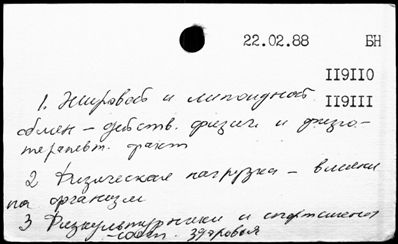 22.02.88 БН
II9II0
1. Жировой и липоидной II9III
обмен - действ. физич. и физио-
терапевт. факт
2 Физическая нагрузка - влияни
на организм
3 Физкультурники и спортсмены
- сост. здоровья